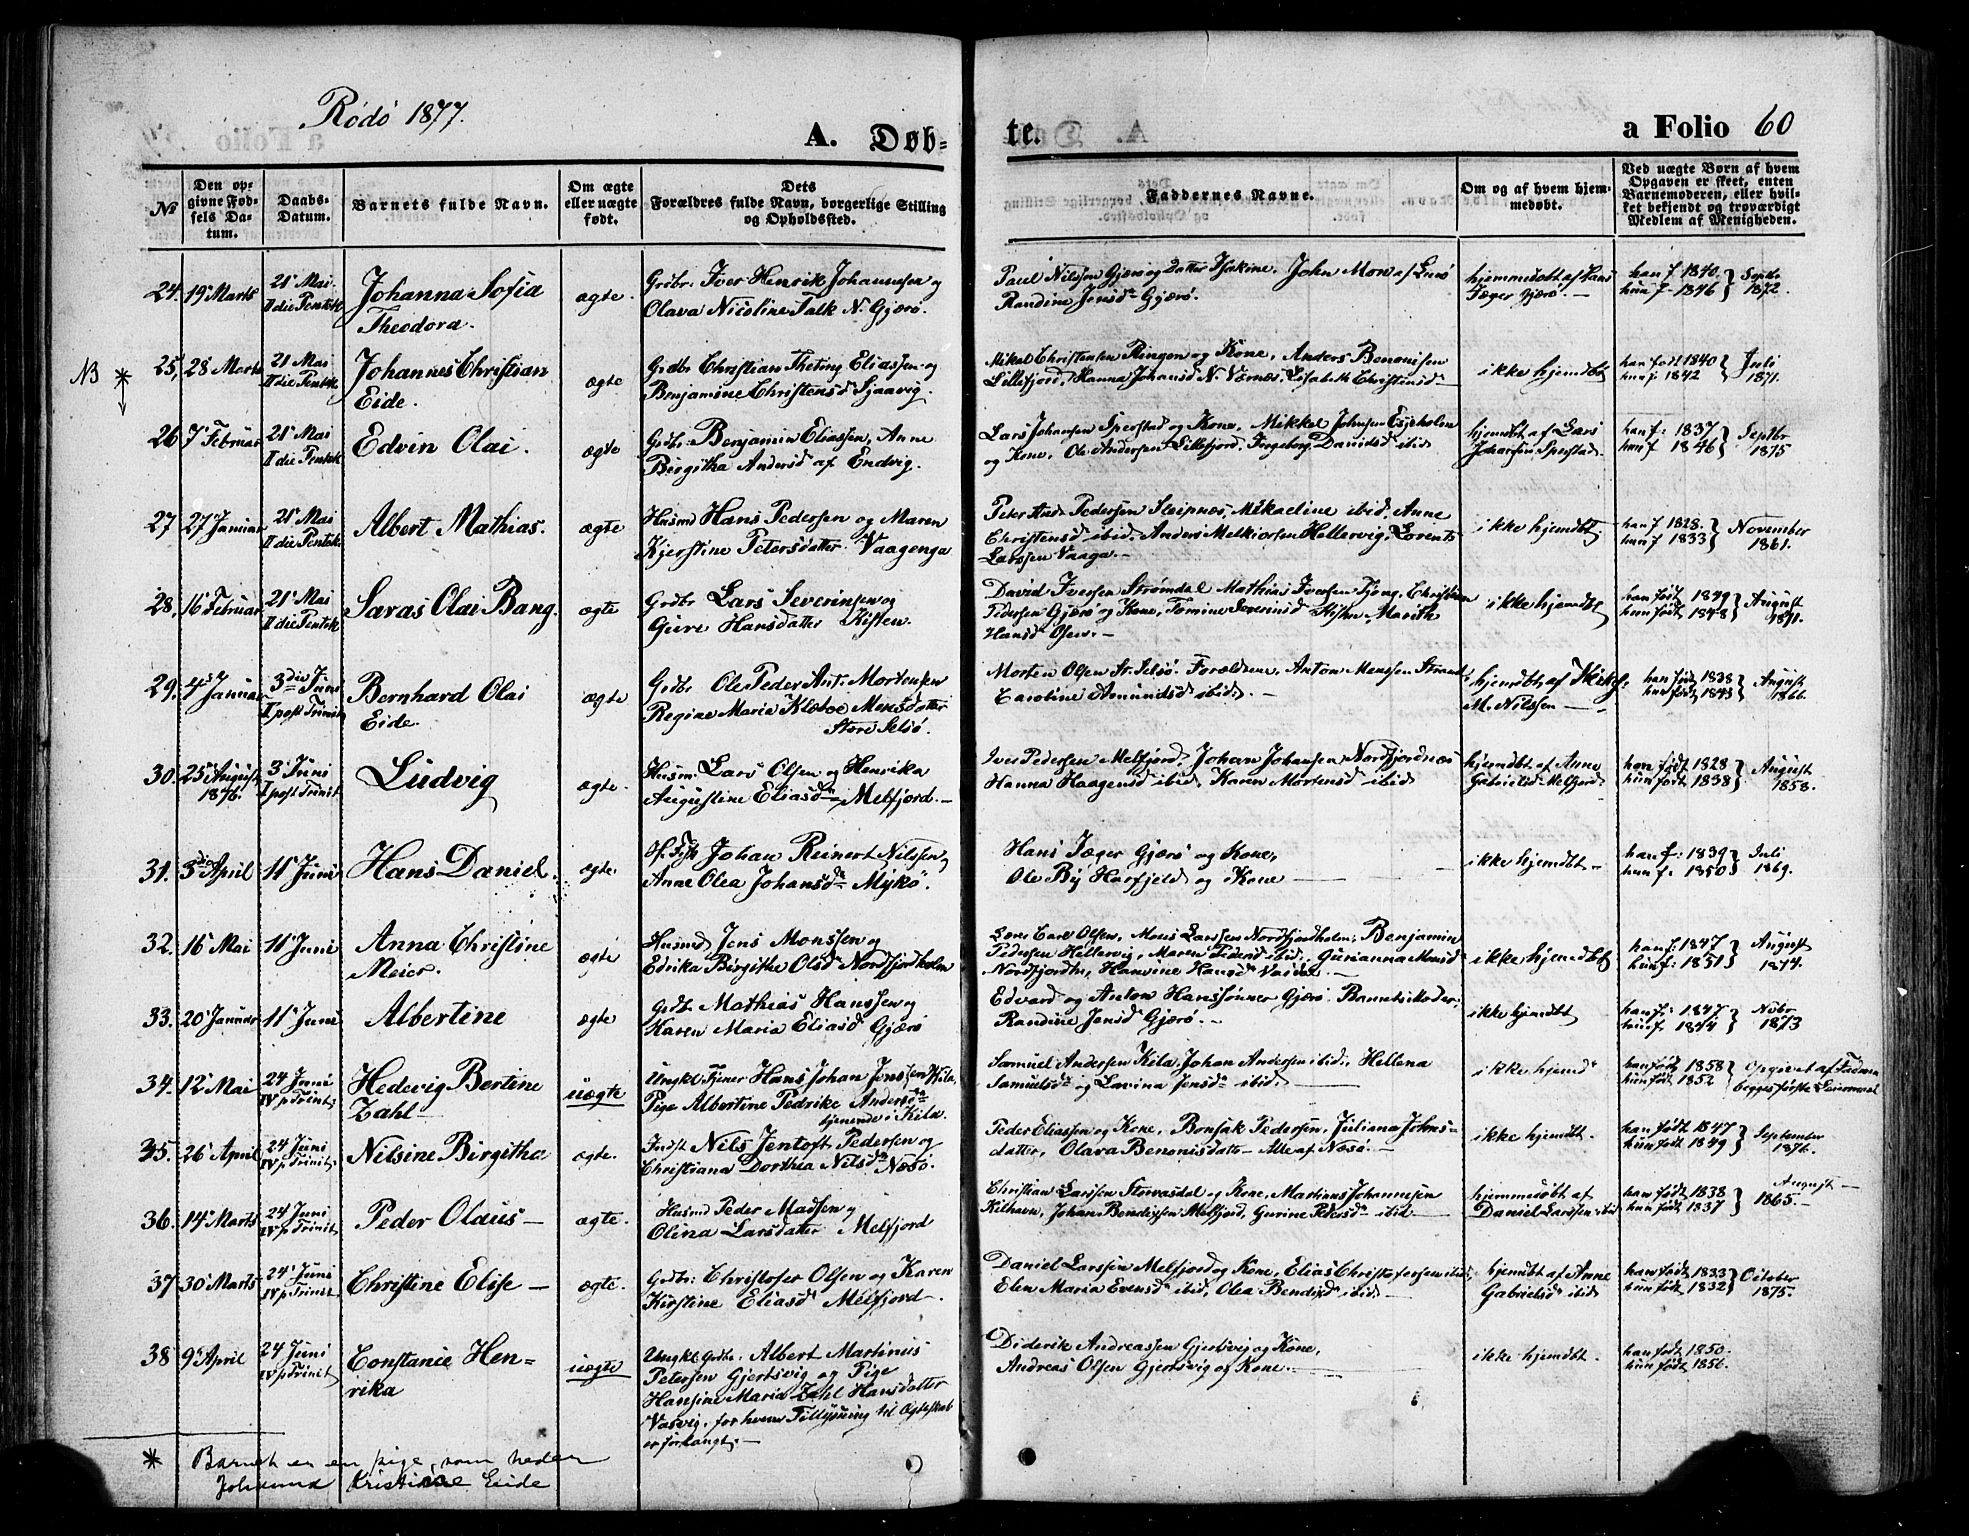 Rödö 1877.
A. Døb=
te.
a Folio 60
№
Den op=
givne Fød=
sels Da=
tum.
Daabs=
Datum.
Barnets fulde Navn.
Om ægte
eller uægte
født.
Dets
Forældres fulde Navn, borgerlige Stilling
og Opholdssted.
Faddernes Navne.
Om og af hvem hjem=
medøbt.
Ved uægte Børn af hvem
Opgaven er skeet, enten
Barnemoderen, eller hvil=
ket bekjendt og troværdigt
Medlem af Menigheden.
24. 19 Marts
21 Mai
II die Pentek
Johanna Sofia
Theodora.
ægte.
Grdbr. Iver Henrik Johannesen og
Olava Nicoline Falk N. Gjærö.
Paul Nilssen Gjærö og Datter Isakine. John Mon af Lurö
Randine Jensd Gjærö.
hjemmedöbt af Hans
Jæger Gjærö. —
han f. 1840.
hun f. 1846
Septr
1872.
NB *
25. 28 Marts
21 Mai
II die Pentek
Johannes Christian
Eide.
ægte
Grdbr Christian Theting Eliassen og
Benjamine Christensd Sjaavig.
Mikal Christensen Ringen og Kone, Anders Benonisen
Lillefjord, Hanna Johansd N. Værnæs, Lisabeth Christensd
ikke hjemdöbt
han födt 1840
hun f. 1842
Juli
1871.
26 7 Februar
21 Mai
II die Pentek
Edvin Olai.
ægte
Grdbr. Benjamin Eliassen, Anne
Birgitha Andersd af Endvig.
Lars Johansen Sperstad og Kone. Mikkel Johnsen Esjeholm
og Kone, Ole Andersen Lillefjord, Ingeborg Davidsd ibid
hjemdbt af Lars
Johansen Sperstad.
han f: 1837
hun f 1846
Septbr
1875
27. 27 Januar
21 Mai
II die Pentek
Albert Mathias.
ægte
Husmd Hans Pedersen og Maren
Kjerstine Petersdatter Vaagenga
Peter And. Pedersen Sleipnæs, Mikaeline ibid. Anne
Christensd ibid. Anders Melkiorsen Hellervig, Lorents
Larssen Vaaga. —
ikke hjemdbt
han f. 1828.
hun f 1833
November
1861.
28. 16 Februar
21 Mai
II die Pentek
Saras Olai Bang.
ægte
Grdbr Lars Severinsen og
Guri Hansdatter Kisten.
David Iversen Strömdal Mathias Iversen Tjong, Christian
Pedersen Gjærö og Kone, Tomine Severinsd Kisten, Marith
Hansd Osen. —
ikke hjemdbt
han födt 1849
hun födt 1848
August
1871.
29. 4 Januar
3die Juni
I post Trinit
Bernhard Olai
Eide.
ægte
Grdbr Ole Peder Ant. Mortensen
Regine Maria Klæboe Monsdatter
Store Selsö.
Morten Olsen St. Selsö. Forældrene, Anton Monssen Strand
Caroline Amundsd ibid. —
hjemdöbt af Kirkes.
M. Nilssen —
han föd 1838
hun födt 1843
August
1866.
30. 25 August
1876.
3 Juni
I post Trinit
Ludvig
ægte.
Husm. Lars Olsen og Henrika
Augustine Eliasd Melfjord. —
Iver Pedersen Melfjord, Johan Johansen Nordfjordnæs
Hanna Haagensd ibid, Karen Mortensd ibid
hjemdbt af Anne
Gabrielsd Melfjord
han födt 1828
hun födt 1838
August
1858.
31. 3die April
11 Juni
Hans Daniel.
ægte.
Johan Reinert Nilssen og
Anne Olea Johansd Mykö.
Hans Jæger Gjærö og Kone,
Ole By Hasfjeld og Kone
ikke hjemdbt —
han f: 1839
hun f. 1850
Juli
1869.
32. 16 Mai
11 Juni
Anna Christine
Meier.
ægte
Husmd Jens Monssen og
Edrika Birgithe Olsd Nordfjordholm
Lars Carl Olsen, Mons Larssen Nordfjordholm, Benjamin
Pedersen Hellervig, Maren Pedersd ibid, Gurianna Monsd
Nordfjordh, Hanvine Hansd
ikke hjemdbt
han f: 1847
hun f: 1851
August
1874.
33. 20 Januar
11 Juni
Albertine
ægte
Grdb. Mathias Hanssen og
Karen Maria Eliasd Gjærö
Edvard og Anton Hanssönner Gjærö. Barnets Moder.
Randine Jensd Gjærö. —
ikke hjemdbt
han f: 1847
hun f. 1844
Novbr
1873
34. 12 Mai
24 Juni
IV p Trinit
Hedevig Bertine
Zahl —
uægte
Ungkl Tjener Hans Johan Jenssen Kila,
Pige Albertine Pedrike Andersd
tjenende i Kila
Samuel Andersen Kila, Johan Andersen ibid., Hellena
Samuelsd og Lovina Jensd ibid.
ikke hjemd
han födt 1858
hun födt 1852
Opgivet af Faderen
begges förste Leiermaal
35. 26 April
24 Juni
IV p Trinit.
Nilsine Birgitha
ægte.
Indst Nils Jentoft Pedersen og
Christiana Dorthea Nilsd Næsö.
Peder Eliassen og Kone, Bonsak Pedersen, Juliana Johns=
datter, Olava Benonisdatter — Alle af Næsö. —
ikke hjemdbt.
han födt 1847
hun födt 1849
September
1876.
36. 14 Marts
24 Juni
IV p Trinit
Peder Olaus —
ægte.
Husmd Peder Madsen og
Olina Larsdatter Melfjord
Christian Larssen Storvasdal og Kone, Martinus Johannesen
Kilhavn, Johan Bendixsen Melfjord, Gurine Pedersd ibid
hjemmedöbt af
Daniel Larssen ibid
han födt 1838
hun födt 1837
August —
1865. —
37 30 Marts
24 Juni
IV p Trinit.
Christine Elise —
ægte.
Grdbr: Christofer Olsen og Karen
Kirstine Eliasd Melfjord.
Daniel Larssen Melfjord og Kone, Elias Christofersen ibid,
Elen Maria Evensd ibid, Olea Bendixd ibid —
hjemdbt af Anne
Gabrielsd ibid
han födt 1833
hun födt 1832
October
1875.
38 9 April
24 Juni
IV p Trinit
Constanie Hen=
rika
uægte
Ungkl Grdbr. Albert Martinus
Petersen Gjertsvig og Pige
Hansine Maria Zahl Hansdatter
Vasvig, for hvem Tillysning til Ægteskab
er forlangt. —
Diderik Andreassen Gjertsvig og Kone,
Andreas Olsen Gjertsvig og Kone.
ikke hjemdbt.
han födt 1850.
hun födt 1856.
* Barnet er en pige, som heder
Johanna Kristine Eide